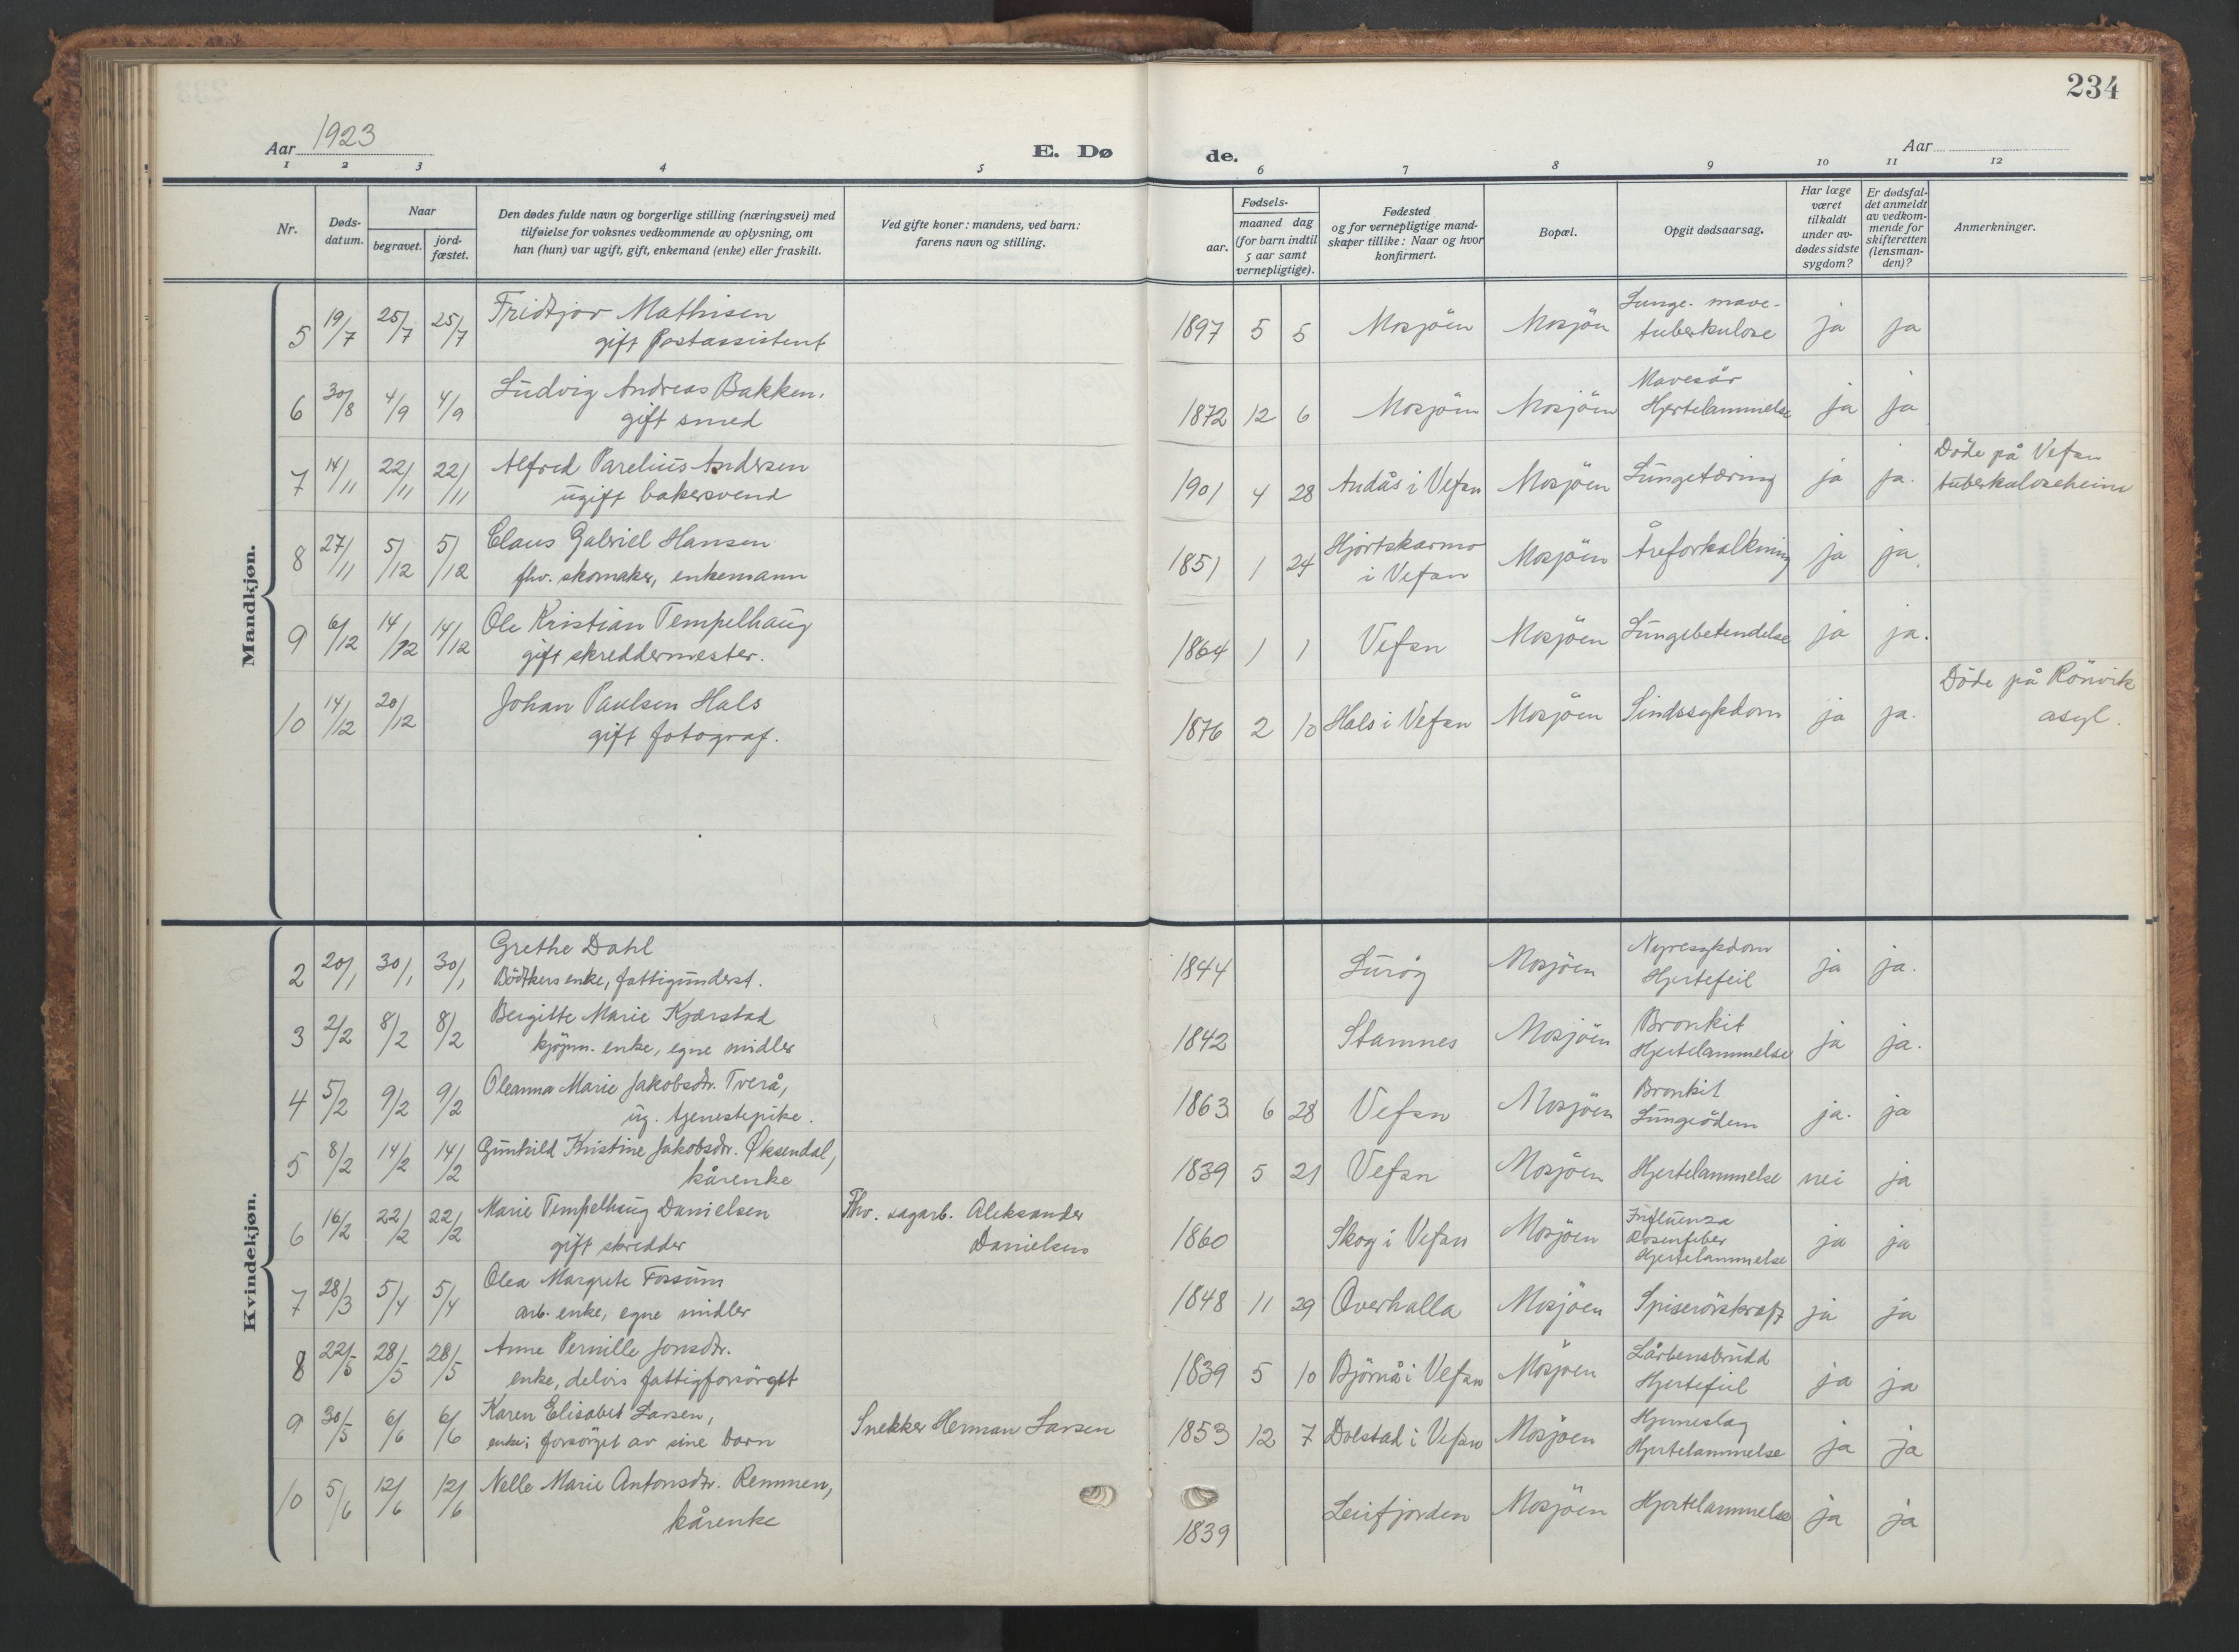 234
Aar 1923
E. Dø de.
Aar
1 2 3 4 5 6 7 8 9 10 11 12
Nr.
Døds-
datum.
Naar
begravet.
jord-
fæstet.
Den dødes fulde navn og borgerlige stilling (næringsvei) med
tilføielse for voksnes vedkommende av oplysning, om
han (hun) var ugift, gift, enkemand (enke) eller fraskilt.
Ved gifte koner: mandens, ved barn:
farens navn og stilling.
Fødsels-
aar.
maaned dag
(for barn indtil
5 aar samt
vernepligtige).
Fødested
og for vernepligtige mand-
skaper tillike: Naar og hvor
konfirmert.
Bopæl.
Opgit dødsaarsag.
Har læge
været
tilkaldt
under av-
dødes sidste
sygdom?
Er dødsfal-
det anmeldt
av vedkom-
mende for
skifteretten
(lensman-
den)?
Anmerkninger.
Mandkjøn.
5 19/7 25/7 25/7 Fridtjov Mathisen
gift Postassistent
1897 5 5 Mosjöen Mosjöen Lunge- mave-
tuberkulose ja ja
6 30/8 4/9 4/9 Ludvig Andreas Bakken.
gift smed
1872 12 6 Mosjöen Mosjöen Mavesår
Hjertelammelse ja ja
7 14/11 22/11 22/11 Alfred Parelius Andersen
ugift bakersvend
1901 4 28 Andås i Vefsn Mosjöen Lungetæring ja ja. Döde på Vefsn
tuberkuloseheim
8 27/11 5/12 5/12 Claus Gabriel Hansen
fhv. skomaker, enkemann
1851 1 24 Hjortskarmo
i Vefsn Mosjöen Åreforkalkning ja ja.
9 6/12 14/12 14/12 Ole Kristian Tempelhaug
gift skreddermester.
1864 1 1 Vefsn Mosjöen Lungebetendelse ja ja.
10 14/12 20/12 Johan Paulsen Hals
gift fotograf.
1876 2 10 Hals i Vefsn Mosjöen Sindssykdom ja ja. Döde på Rönvik
asyl.
Kvindekjøn.
2 20/1 30/1 30/1 Grethe Dahl
Bödtkers enke, fattigunderst.
1844 Luröy Mosjöen Nyresykdom
Hjertefeil ja ja.
3 2/2 8/2 8/2 Bergitte Marie Kjærstad
kjöpm. enke, egne midler
1842 Stamnes Mosjöen Bronkit
Hjertelammelse ja ja.
4 5/2 9/2 9/2 Oleanna Marie Jakobsdtr. Tverå,
ug. tjenestepike.
1863 6 28 Vefsn Mosjöen Bronkit
Lungeödem ja. ja
5 8/2 14/2 14/2 Gunhild Kristine Jakobsdtr. Øksendal,
kårenke
1839 5 21 Vefsn Mosjöen Hjertelammelse nei ja
6 16/2 22/2 22/2 Marie Tempelhaug Danielsen
gift skredder
Fhv. sagarb. Aleksander
Danielsen
1860 Skog i Vefsn Mosjöen Influensa
Rosenfeber
Hjertelammelse ja ja
7 28/3 5/4 5/4 Olea Margrete Fossum
arb. enke, egne midler
1848 11 29 Overhalla Mosjöen Spiserörskræft ja ja
8 22/5 28/5 28/5 Anne Pernille Jonsdtr.
enke, delvis fattigforsörget
1839 5 10 Björnå i Vefsn Mosjöen Lårbensbrudd
Hjertefeil ja ja
9 30/5 6/6 6/6 Karen Elisabet Larsen,
enke; forsörget av sine barn
Snekker Herman Larsen
1853 12 7 Dolstad i Vefsn Mosjöen Hjerneslag
Hjertelammelse ja ja
10 5/6 12/6 12/6 Nelle Marie Antonsdtr. Remmen,
kårenke
1839 Leirfjorden Mosjöen Hjertelammelse ja ja